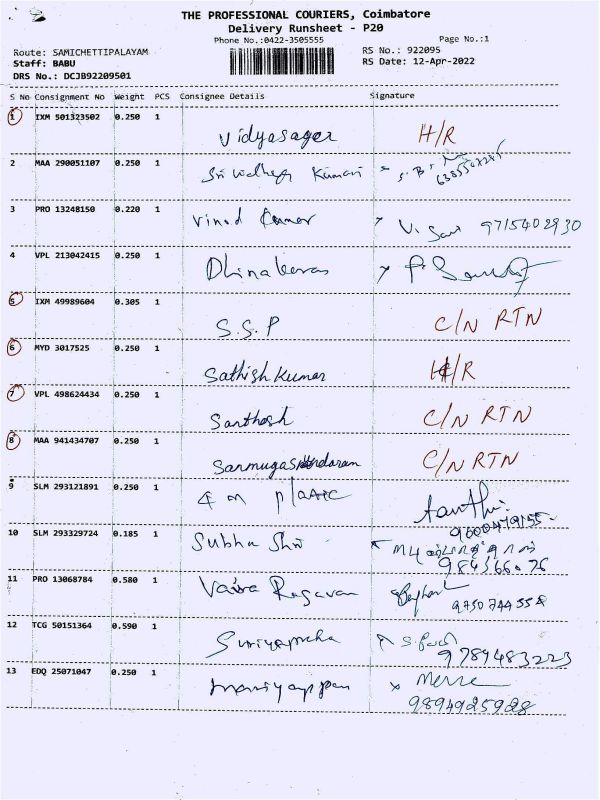 THE PROFESSIONAL COURIERS, Coimbatore
Delivery Runsheet - P20
Phone No.:0422-3505555
Page No.:1
Route: SAMICHETTIPALAYAM
RS No.: 922095
Staff: BABU
RS Date: 12-Apr-2022
DRS No.: DCJB92209501
S No Consignment No Weight PCS Consignee Details Signature
1 IXM 501323502 0.250 1 Vidyasager H/R
2 MAA 290051107 0.250 1 Sri Vidhya Kumari
3 PRO 13248150 0.220 1 Vinod Kumar 9715402930
4 VPL 213042415 0.250 1 Dhinakaran
5 IXM 49989604 0.305 1 S.S.P C/N RTN
6 MYD 3017525 0.250 1 Sathish Kumar H/R
7 VPL 498624434 0.250 1 Santhosh C/N RTN
8 MAA 941434707 0.250 1 C/N RTN
9 SLM 293121891 0.250 1
10 SLM 293329724 0.185 1 Subha Shri
11 PRO 13068784 0.580 1 Ragavan
12 TCG 50151364 0.590 1 9789483223
13 EDQ 25071047 0.250 1 9894925928